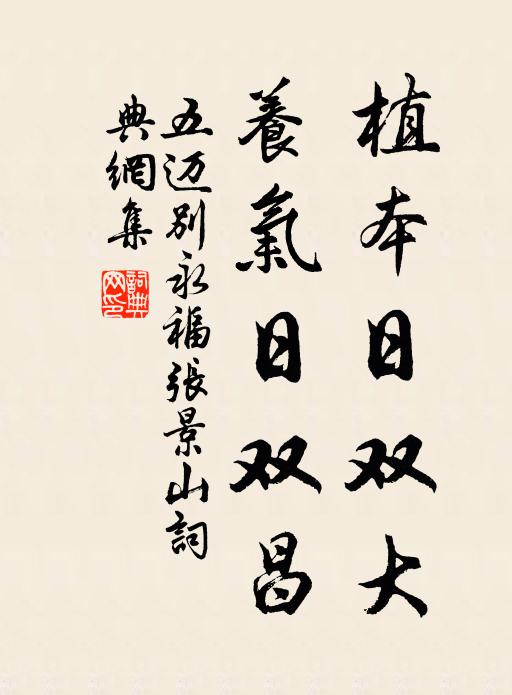 植本日双大
養氣日双昌
五迈别永福張景山詞
典網集
詞典
网印